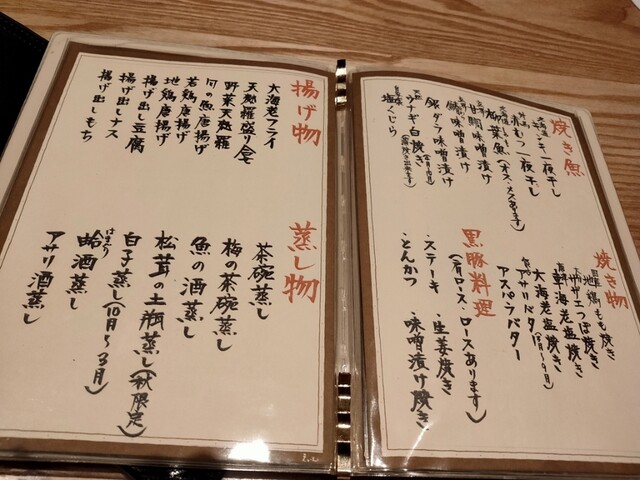 焼き魚
一夜干し
赤むつ一夜干し
柳葉魚(オス、メスあります)
甘鯛味噌漬け
味噌漬け
銀ダラ味噌漬け
ウナギ白焼き
塩くじら
焼き物
地鶏もも焼き
サザエつぼ焼き
車海老塩焼き
大海老塩焼き
アサリバター
アスパラバター
黒豚料理
(肩ロース・ロースあります)
・ステーキ ・生姜焼き
・とんかつ ・味噌漬け焼き
揚げ物
大海老フライ
天麩羅盛り合せ
野菜天麩羅
旬の魚唐揚げ
若鶏唐揚げ
地鶏唐揚げ
揚げ出し豆腐
揚げ出しナス
揚げ出しもち
蒸し物
茶碗蒸し
梅の茶碗蒸し
魚の酒蒸し
松茸の土瓶蒸し(秋限定)
白子蒸し(10月～3月)
蛤酒蒸し
アサリ酒蒸し